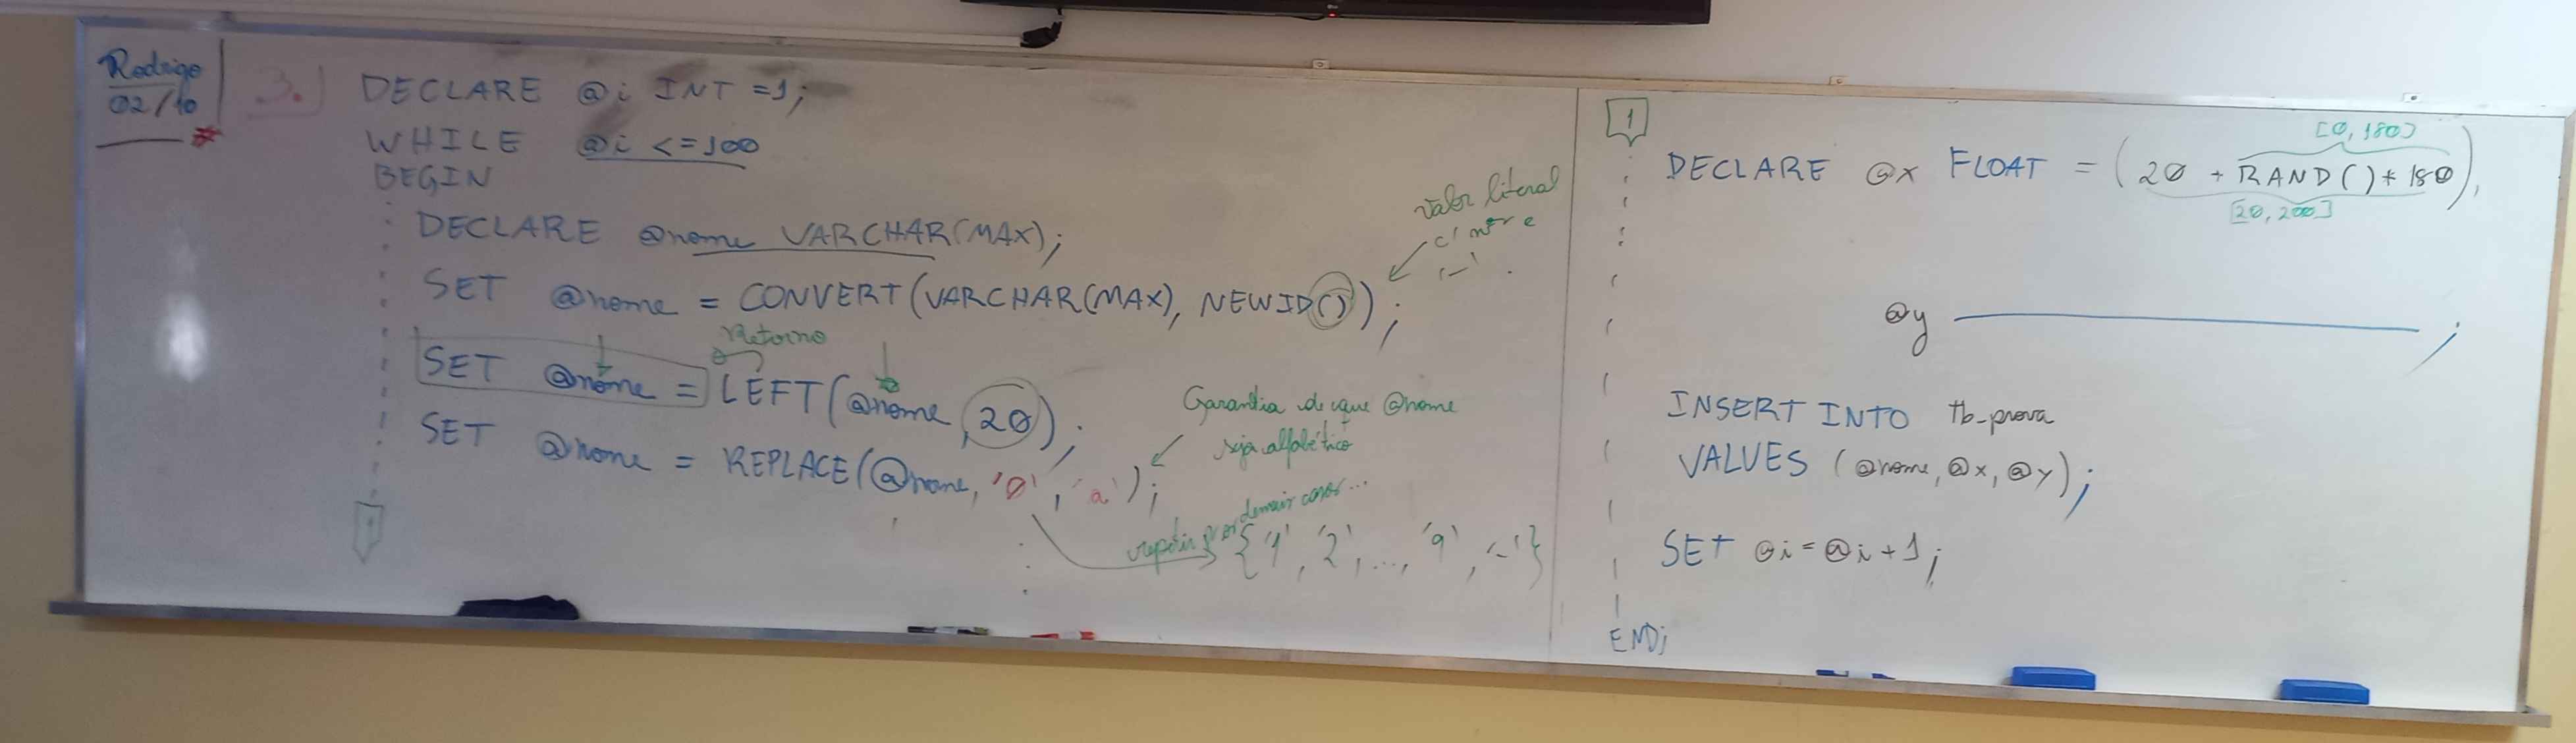 Rodrigo
02/10
3.)
DECLARE @i INT =1;
WHILE @i <=100
BEGIN
DECLARE @nome VARCHAR(MAX);
SET @nome = CONVERT(VARCHAR(MAX), NEWID());
valor literal
c/ ntr e
'-'
SET @nome = LEFT(@nome, 20);
Retorno
SET @nome = REPLACE(@nome, '0', 'a');
Garantia de que @nome
seja alfabético
repetir p/ os demais casos...
{'1', '2', ..., '9', '-'}
1
1
DECLARE @x FLOAT = (20 + RAND()*180),
[0, 180]
[20, 200]
@y ;
INSERT INTO tb_prova
VALUES (@nome, @x, @y);
SET @i = @i + 1;
END;